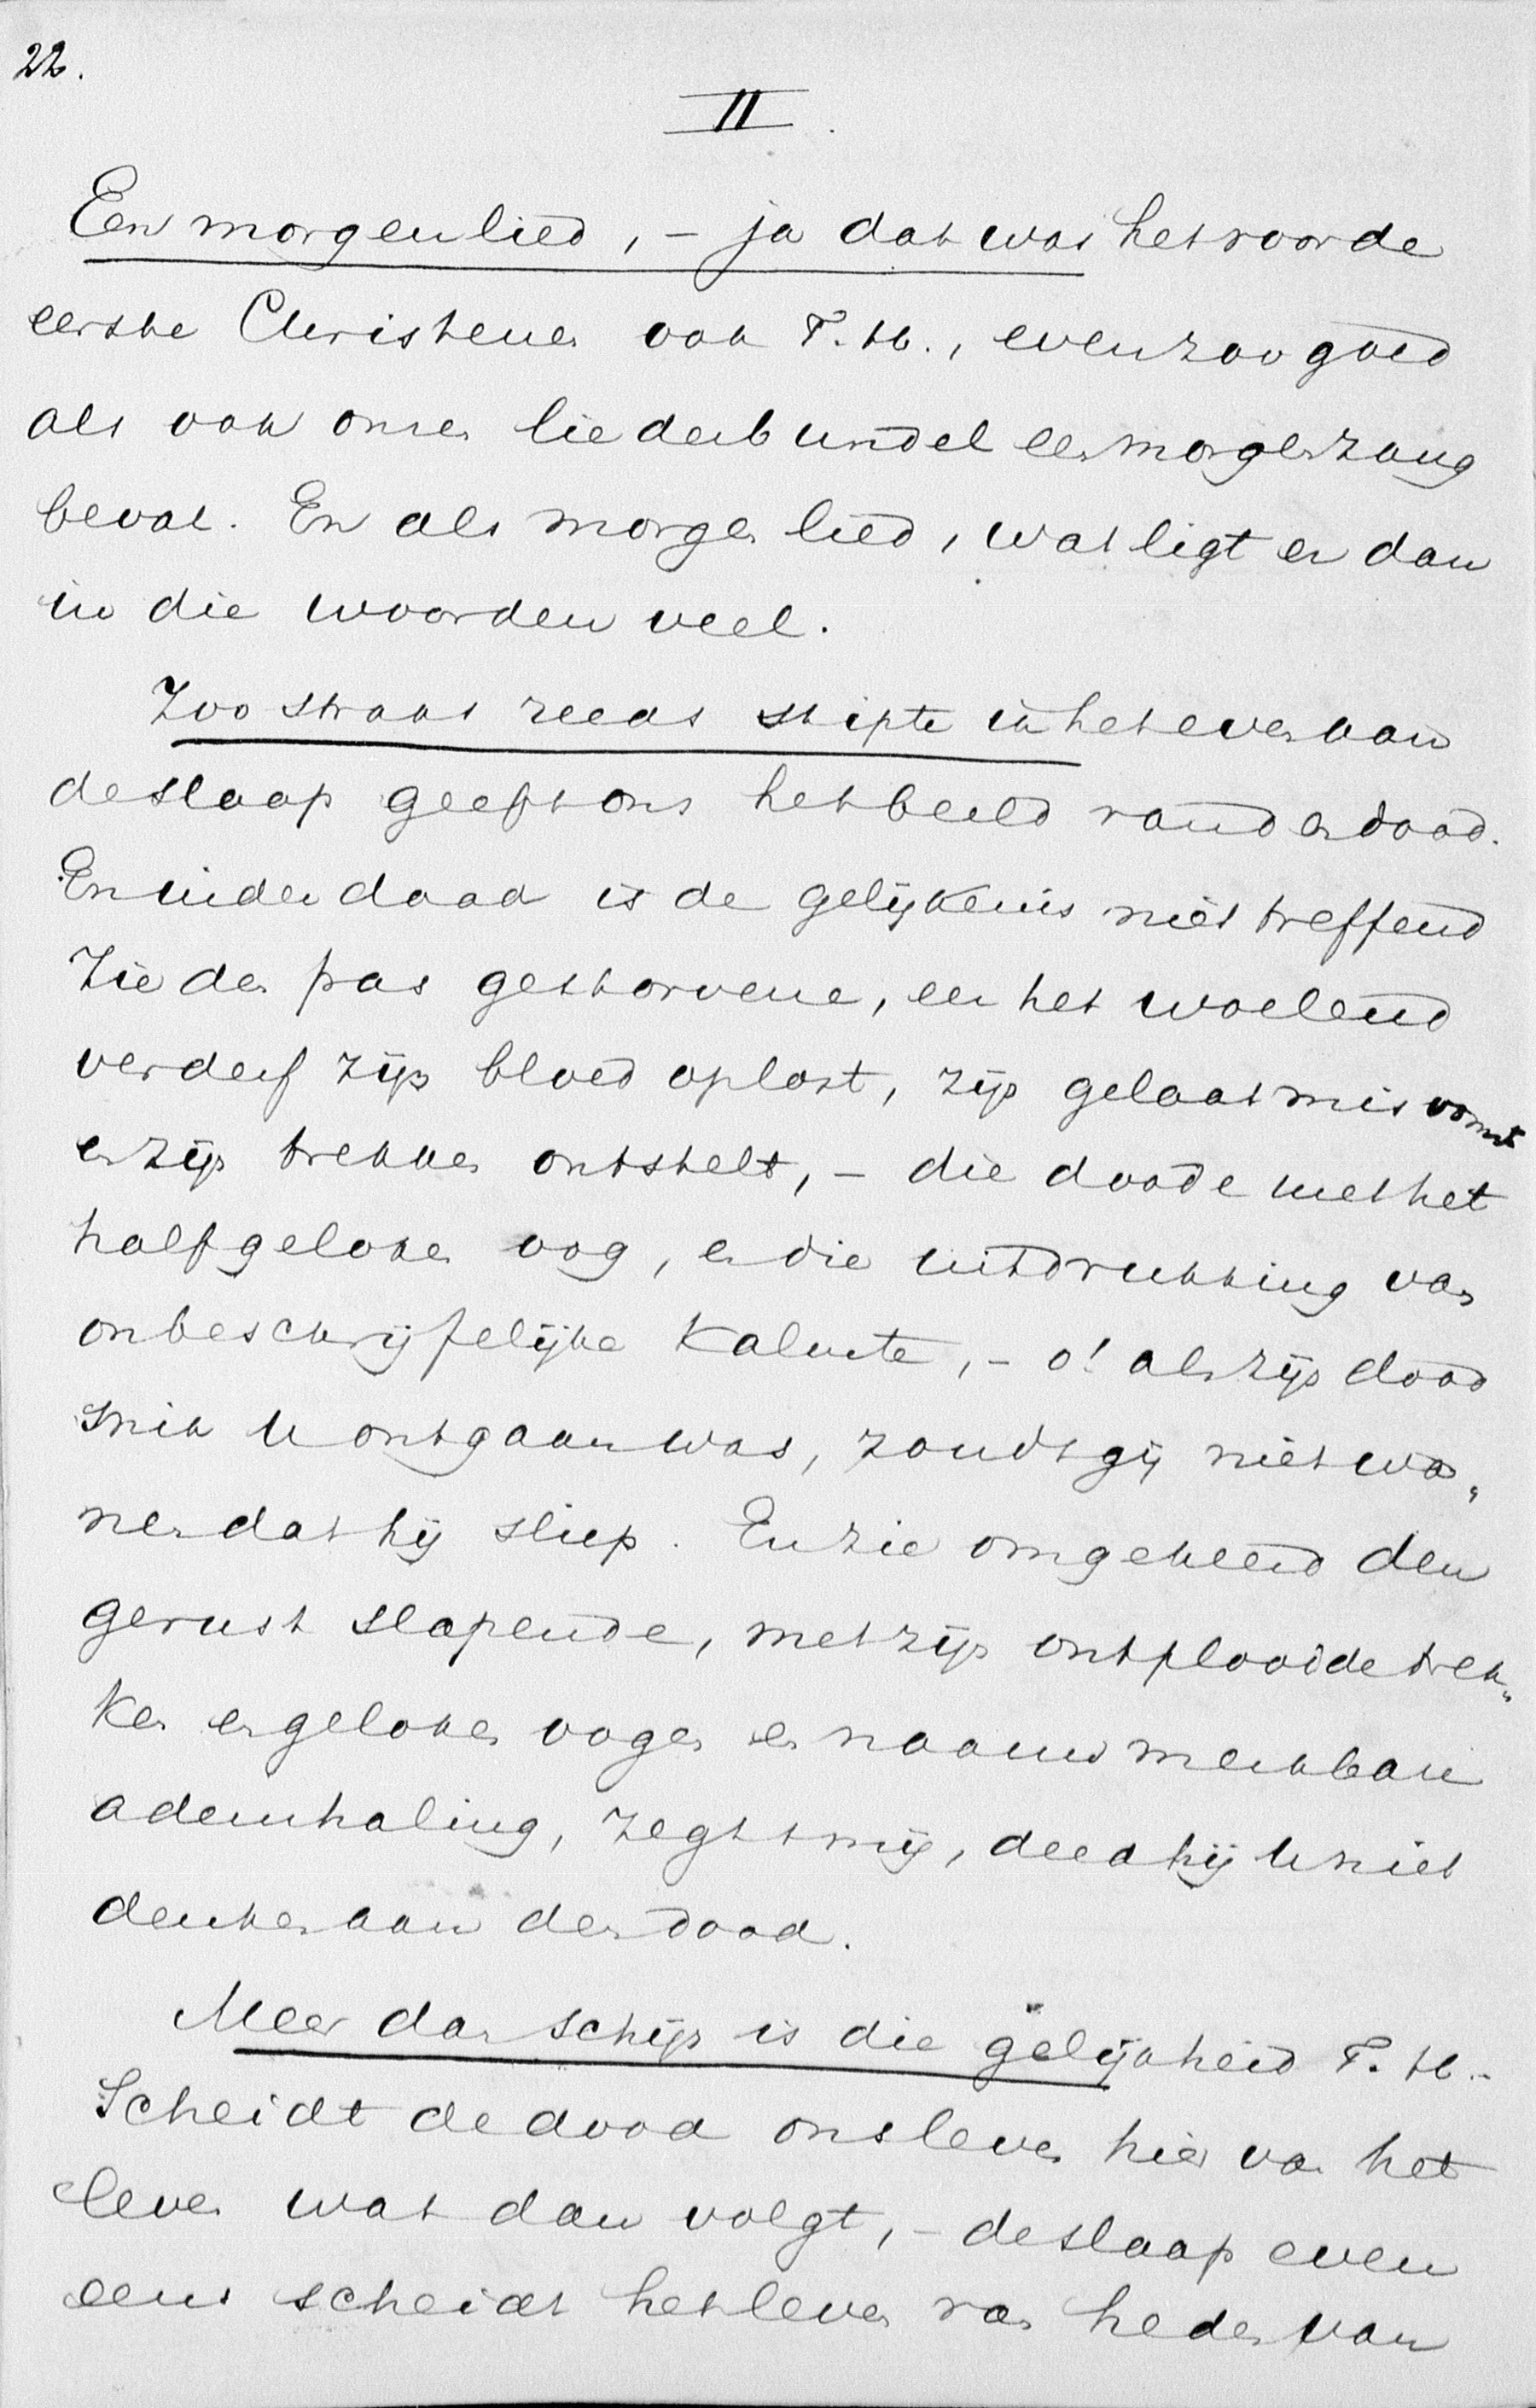 22.
II.
Een morgenlied, – ja dat was het voor de
eerste Christenen ook T. H., evenzoo goed
als ook onzen liederbundel een morgenzang
bevat. En als morgenlied, wat ligt er dan
in die woorden veel.
Zoo straks reeds stipte ik het even aan
de slaap geeft ons het beeld van den dood.
En inderdaad is de gelijkenis niet treffend
Zie den pas gestorvene, eer het woelend
verderf zijn bloed oplost, zijn gelaat misvormt
en zijn trekken ontstelt, – die doode met het
half geloken oog, en die uitdrukking van
onbeschrijfelijke kalmte, – o! als zijn dood
snik U ontgaan was, zoudt gij niet wa„
nen dat hij sliep. En zie omgekeerd den
gerust slapende, met zijn ontplooide trek„
ken en geloken oogen en naauw merkbare
ademhaling, zegt mij, deed hij U niet
denken aan den dood.
Meer dan schijn is die gelijkheid T. H..
Scheidt de dood ons leven hier van het
leven wat dan volgt, – de slaap even
eens scheidt het leven van heden van